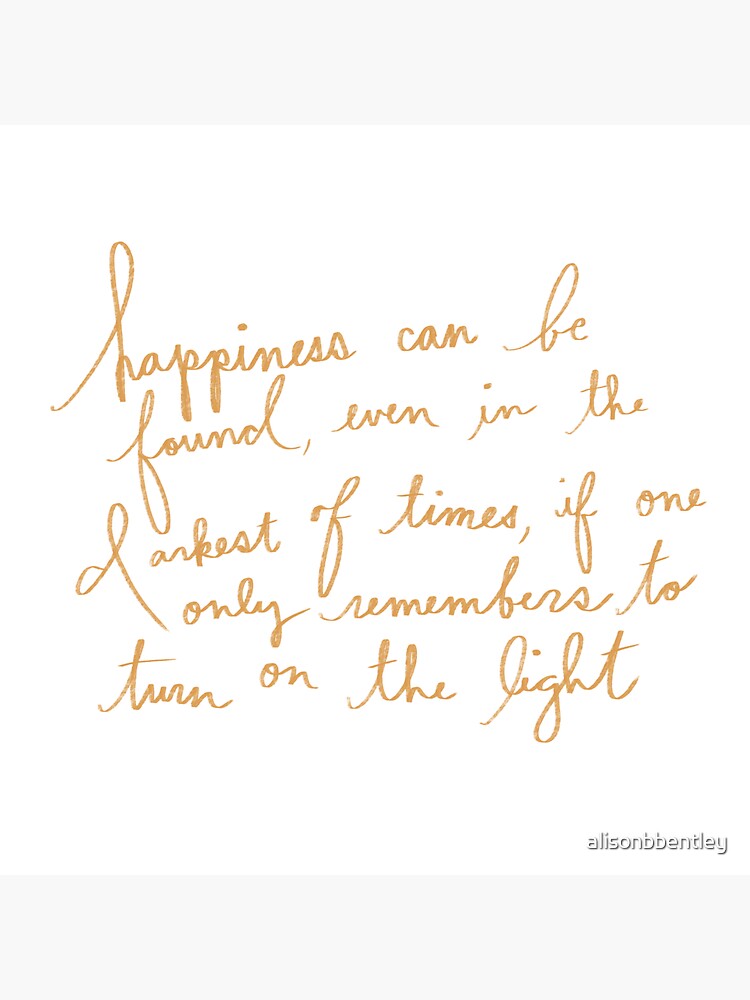 happiness can be
found, even in the
darkest of times, if one
only remembers to
turn on the light
alisonbbentley